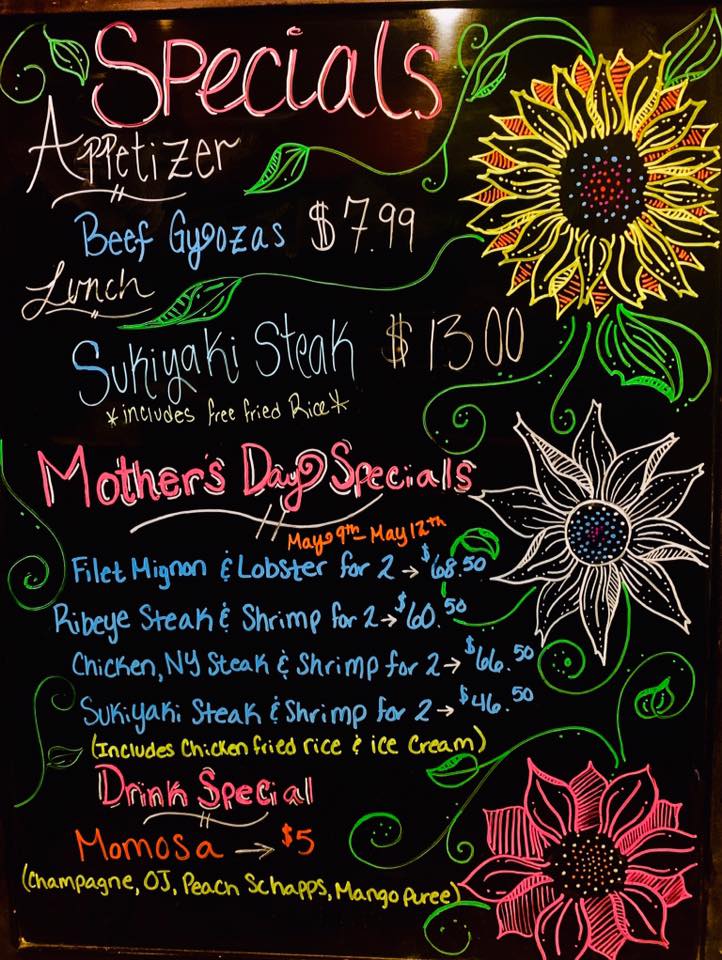 Specials
Appetizer
Beef Gyozas $7.99
Lunch
Sukiyaki Steak $13.00
*includes free fried Rice*
Mother's Day Specials
May 9th - May 12th
Filet Mignon & Lobster for 2 → $68.50
Ribeye Steak & Shrimp for 2 → $60.50
Chicken, NY Steak & Shrimp for 2 → $66.50
Sukiyaki Steak & Shrimp for 2 → $46.50
(Includes Chicken fried rice & ice Cream)
Drink Special
Momosa → $5
(Champagne, OJ, Peach Schapps, Mango Puree)